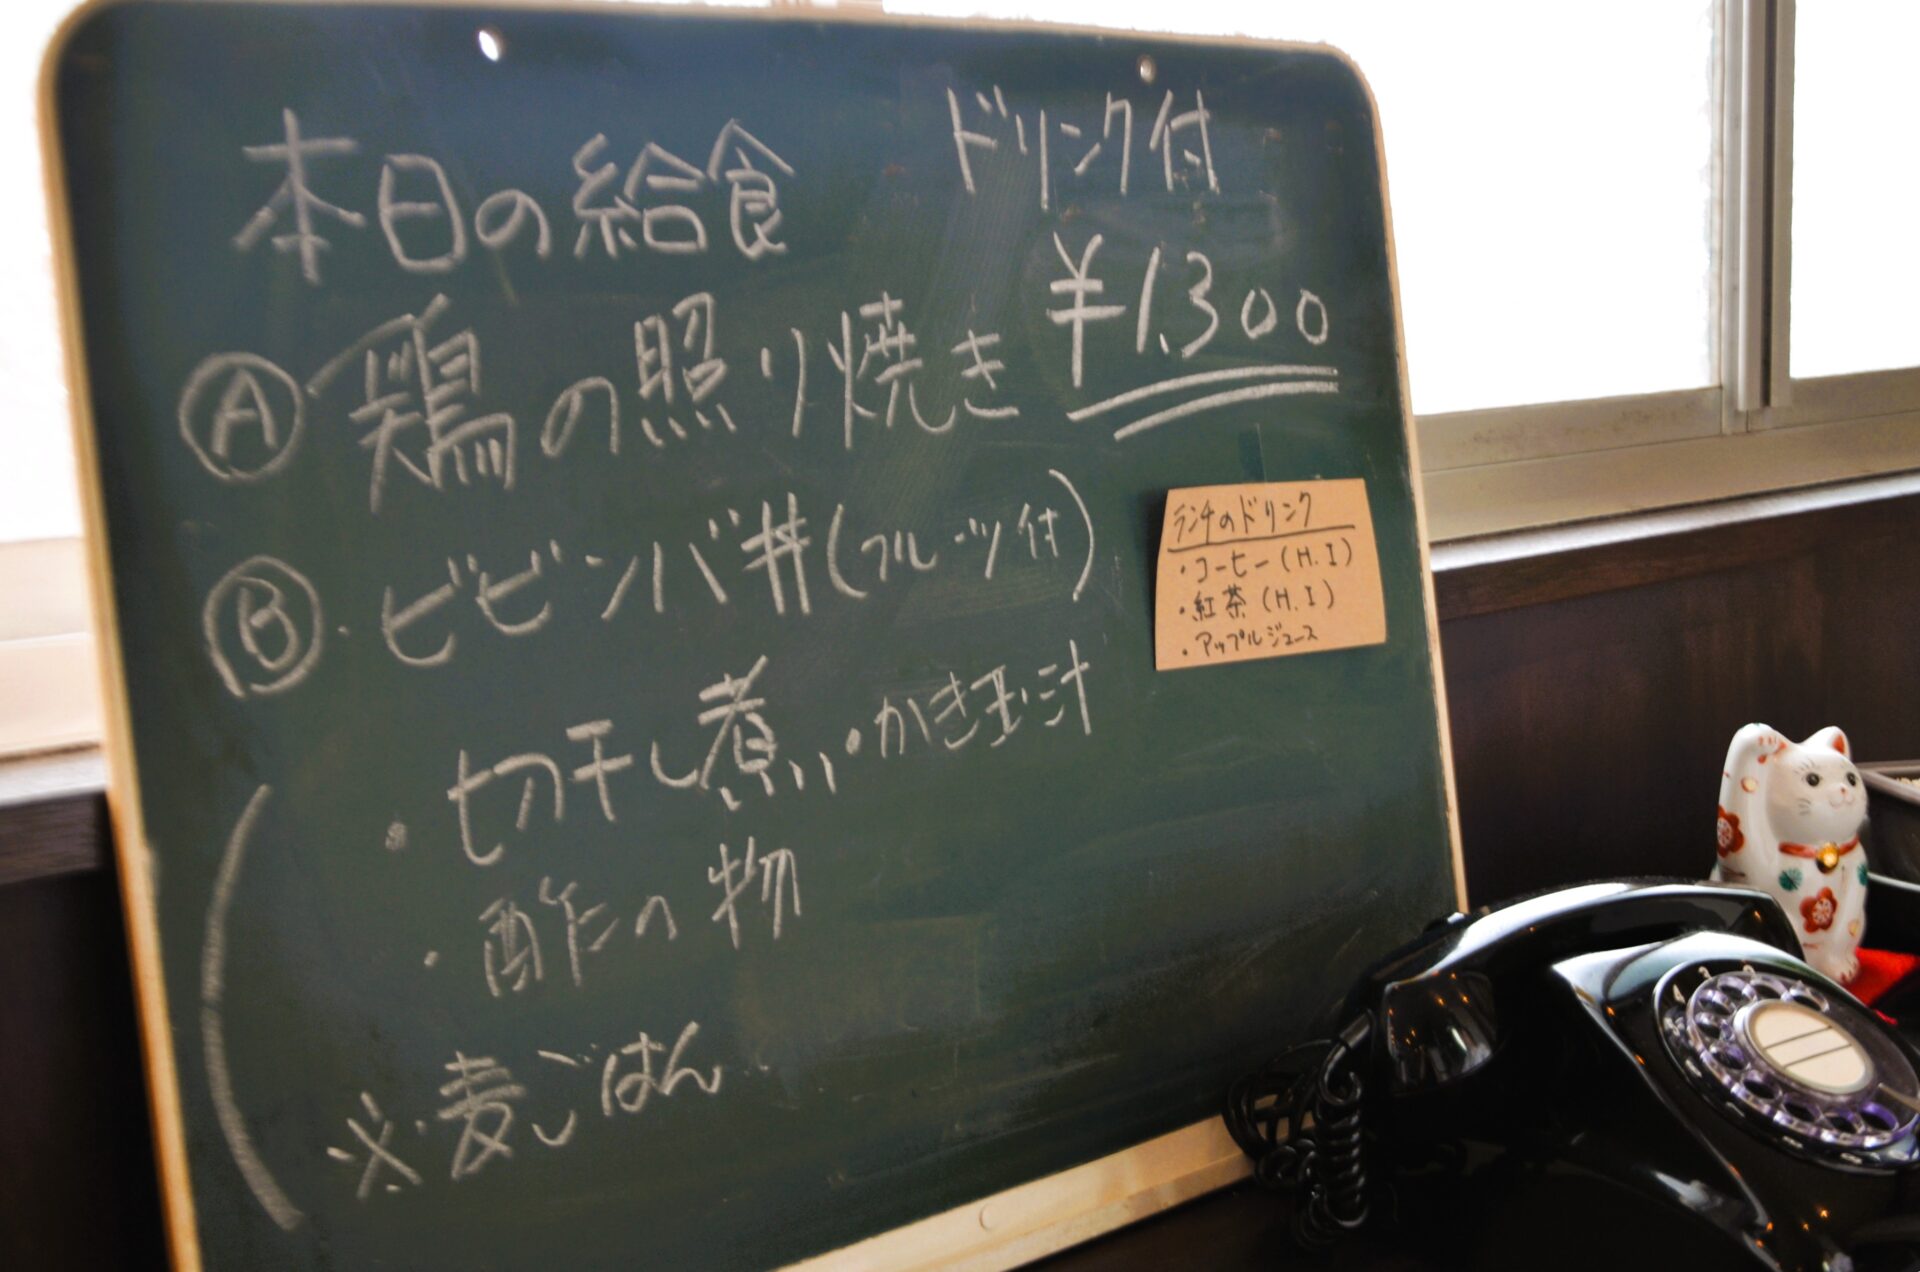 本日の給食
ドリンク付
¥1.300
Ⓐ 鶏の照り焼き
Ⓑ・ビビンバ丼(フルーツ付)
・切干し煮・かき玉汁
・酢の物
※・麦ごはん
ランチのドリンク
・コーヒー(H.I)
・紅茶(H.I)
・アップルジュース